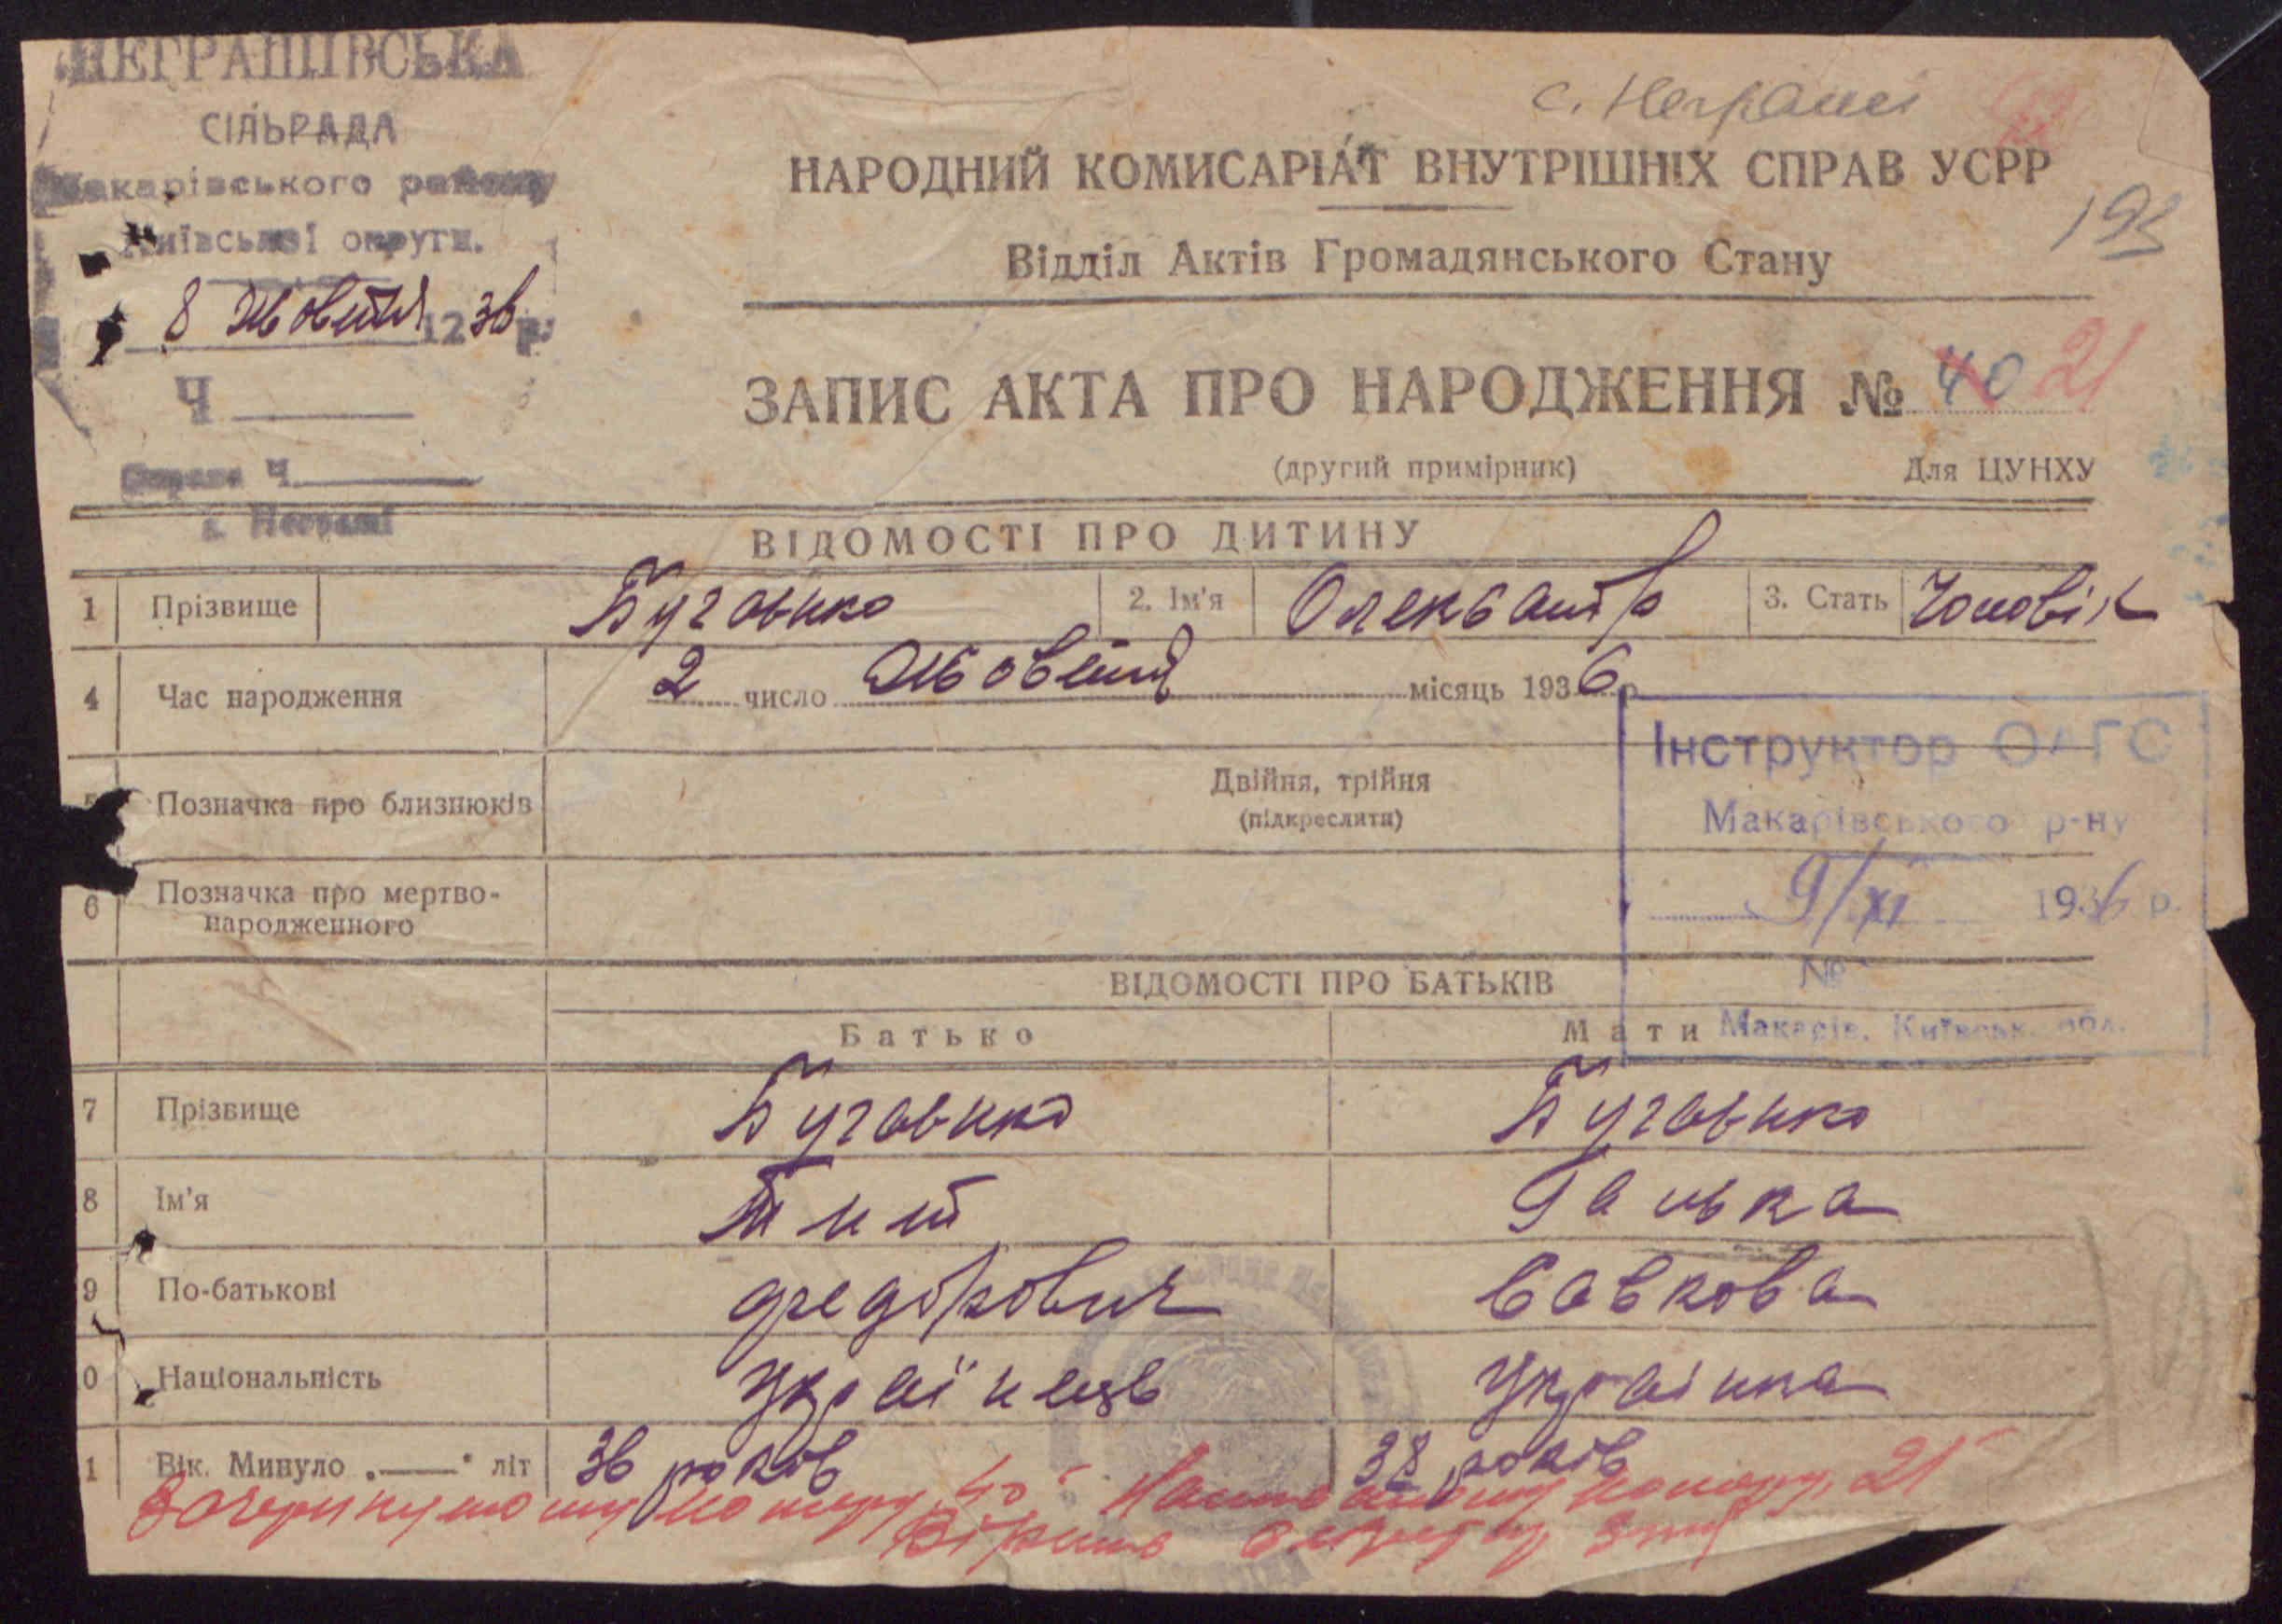 НЕГРАШІВСЬКА
СІЛЬРАДА
Макарівського району
Київської округи.
8 Жовтня 1936 р.
Ч
Справа Ч.
с. Неграші
с. Неграші
НАРОДНИЙ КОМИСАРІАТ ВНУТРІШНІХ СПРАВ УСРР
193
Відділ Актів Громадянського Стану
ЗАПИС АКТА ПРО НАРОДЖЕННЯ № 40 21
(другий примірник) Для ЦУНХУ
ВІДОМОСТІ ПРО ДИТИНУ
1 Прізвище Бугавико 2. Ім'я Олександр 3. Стать Чоловік
4 Час народження 2 число Жовтня місяць 1936 р.
Інструктор ОАГС
Макарівського р-ну
9/XI 1936 р.
№
Макарів, Київськ. обл.
5 Позначка про близнюків Двійня, трійня
(підкреслити)
6 Позначка про мертво-
народженного
ВІДОМОСТІ ПРО БАТЬКІВ
Батько Мати
7 Прізвище Бугавико Бугавико
8 Ім'я Тит Ганька
9 По-батькові Федорович Савкова
0 Національність Українець Українка
1 Вік. Минуло . — . літ 36 років 38 років
Зачеркнутому номеру 40 - Написаному номеру 21
Вірить